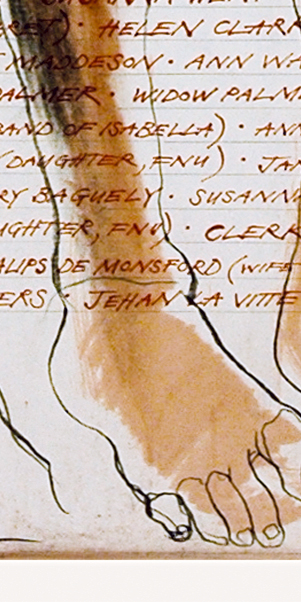 RET) · HELEN CLARK
MADDESON · ANN WA
PALMER · WIDOW PALM
BAND OF ISABELLA) · ANN
(DAUGHTER, FNU) · JA
RY BAGUELY · SUSANN
UGHTER, FNU) · CLERK
ALIPS DE MONSFORD (WIFE
ERS · JEHAN LA VITTE